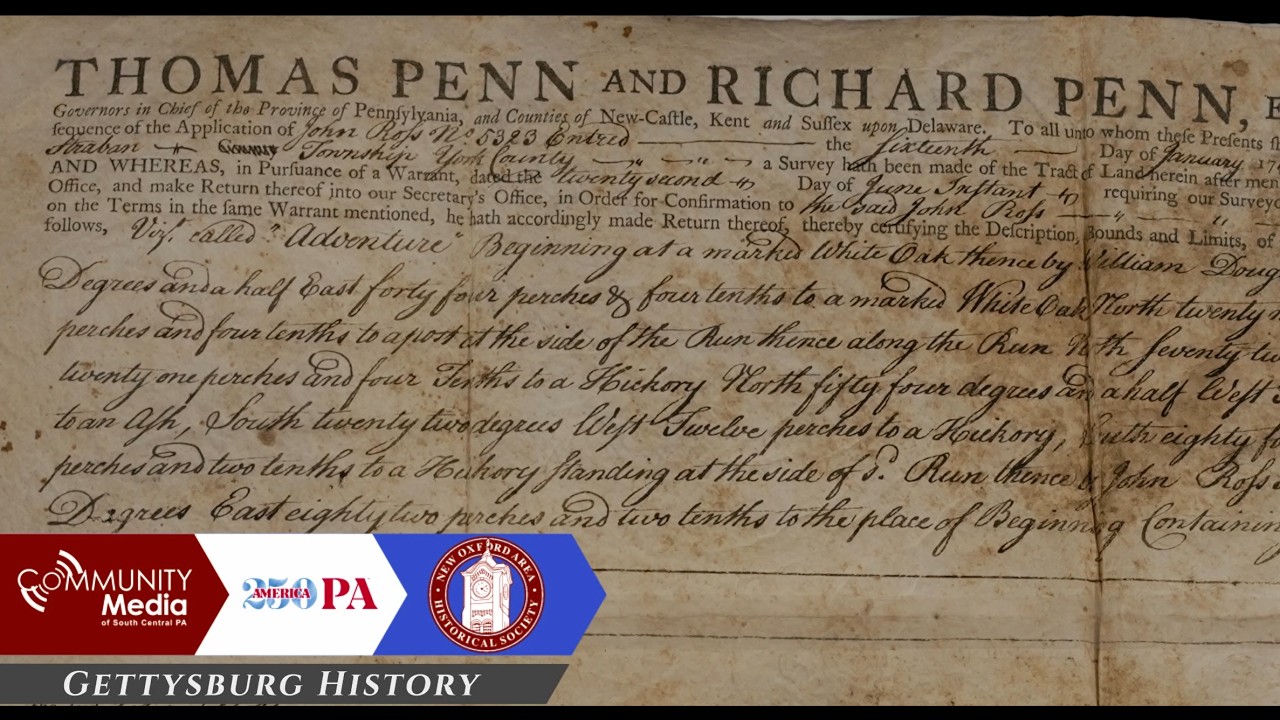 THOMAS PENN AND RICHARD PENN, E
Governors in Chief of the Province of Pennſylvania, and Counties of New-Caſtle, Kent and Suſſex upon Delaware. To all unto whom theſe Preſents ſh
ſequence of the Application of John Roſs No. 5323 Entred the Sixteenth Day of January 17
Straban Township York County a Survey hath been made of the Tract of Land herein after men
AND WHEREAS, in Purſuance of a Warrant, dated the twenty second Day of June Instant requiring our Surveyo
Office, and make Return thereof into our Secretary's Office, in Order for Confirmation to the said John Roſs
on the Terms in the ſame Warrant mentioned, he hath accordingly made Return thereof, thereby certifying the Deſcription, Bounds and Limits, of
follows, Viz. called "Adventure" Beginning at a marked White Oak thence by William Doug
Degrees and a half East forty four perches & four tenths to a marked White Oak North twenty
perches and four tenths to a post at the side of the Run thence along the Run North Seventy
twenty one perches and four Tenths to a Hickory North fifty four degrees and a half West
to an Aſh, South twenty two degrees West Twelve perches to a Hickory, South eighty
perches and two tenths to a Hickory ſtanding at the side of sd. Run thence by John Roſs
Degrees East eighty two perches and two tenths to the place of Beginning Containing
COMMUNITY
Media
of South Central PA
250
AMERICA
PA
NEW OXFORD AREA
HISTORICAL SOCIETY
GETTYSBURG HISTORY